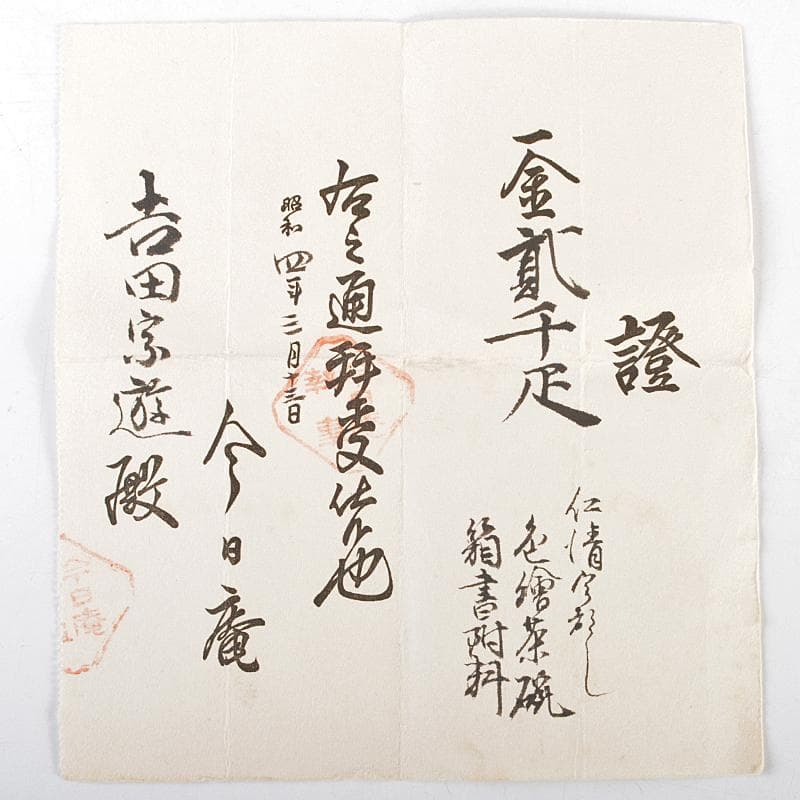 證
一金貳千疋
仁清うつし
色繪茶碗
箱書附料
右之通拜受仕候也
昭和四年三月十三日
今日庵
吉田宗遊殿
今日庵